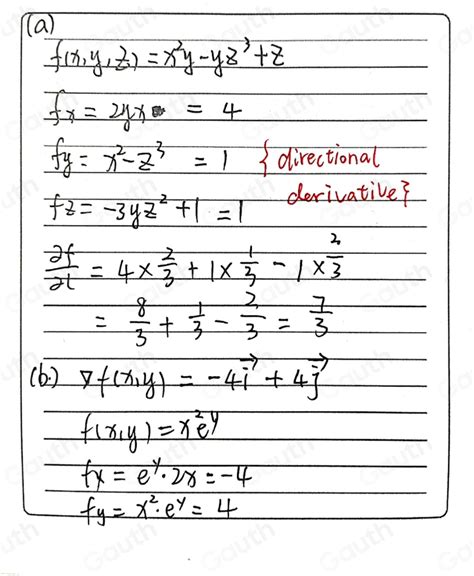 (a)
f(x,y,z) = x²y - yz³ + z
fx = 2yx = 4
fy = x² - z³ = 1 { directional
derivative }
fz = -3yz² + 1 = 1
∂f/∂l = 4 × 2/3 + 1 × 1/3 - 1 × 2/3
= 8/3 + 1/3 - 2/3 = 7/3
(b.) ∇f(x,y) = -4i⃗ + 4j⃗
f(x,y) = x²e^y
fx = e^y · 2x = -4
fy = x² · e^y = 4